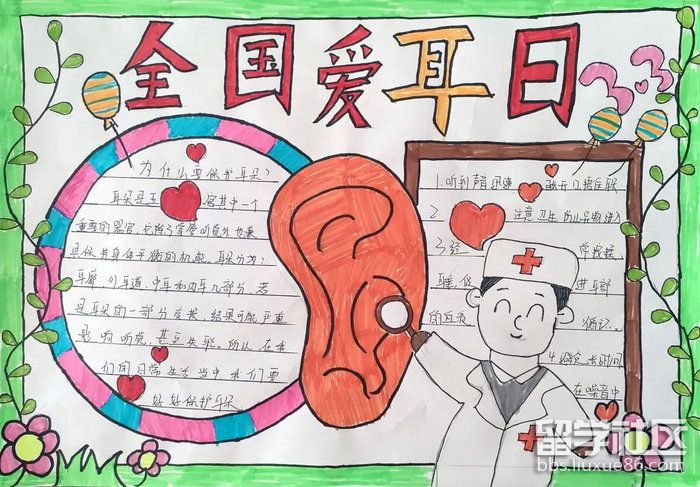 全国爱耳日
3.3
为什么要保护耳朵?
耳朵是五官其中一个
重要的器官,它除了掌管听觉外也兼
具保持身体平衡的机能。耳朵分为:
耳廓、外耳道、中耳和内耳几部分,若
是耳朵的一部分发炎,结果可能严重
影响听觉,甚至失聪。所以,在我
们的日常生活当中我们要
好好保护耳朵
1.听到声音迅速
2 注意卫生
3.经常按摩
耳部
4.避免长时间
在噪音中
留学社区
bbs.liuxue86.com